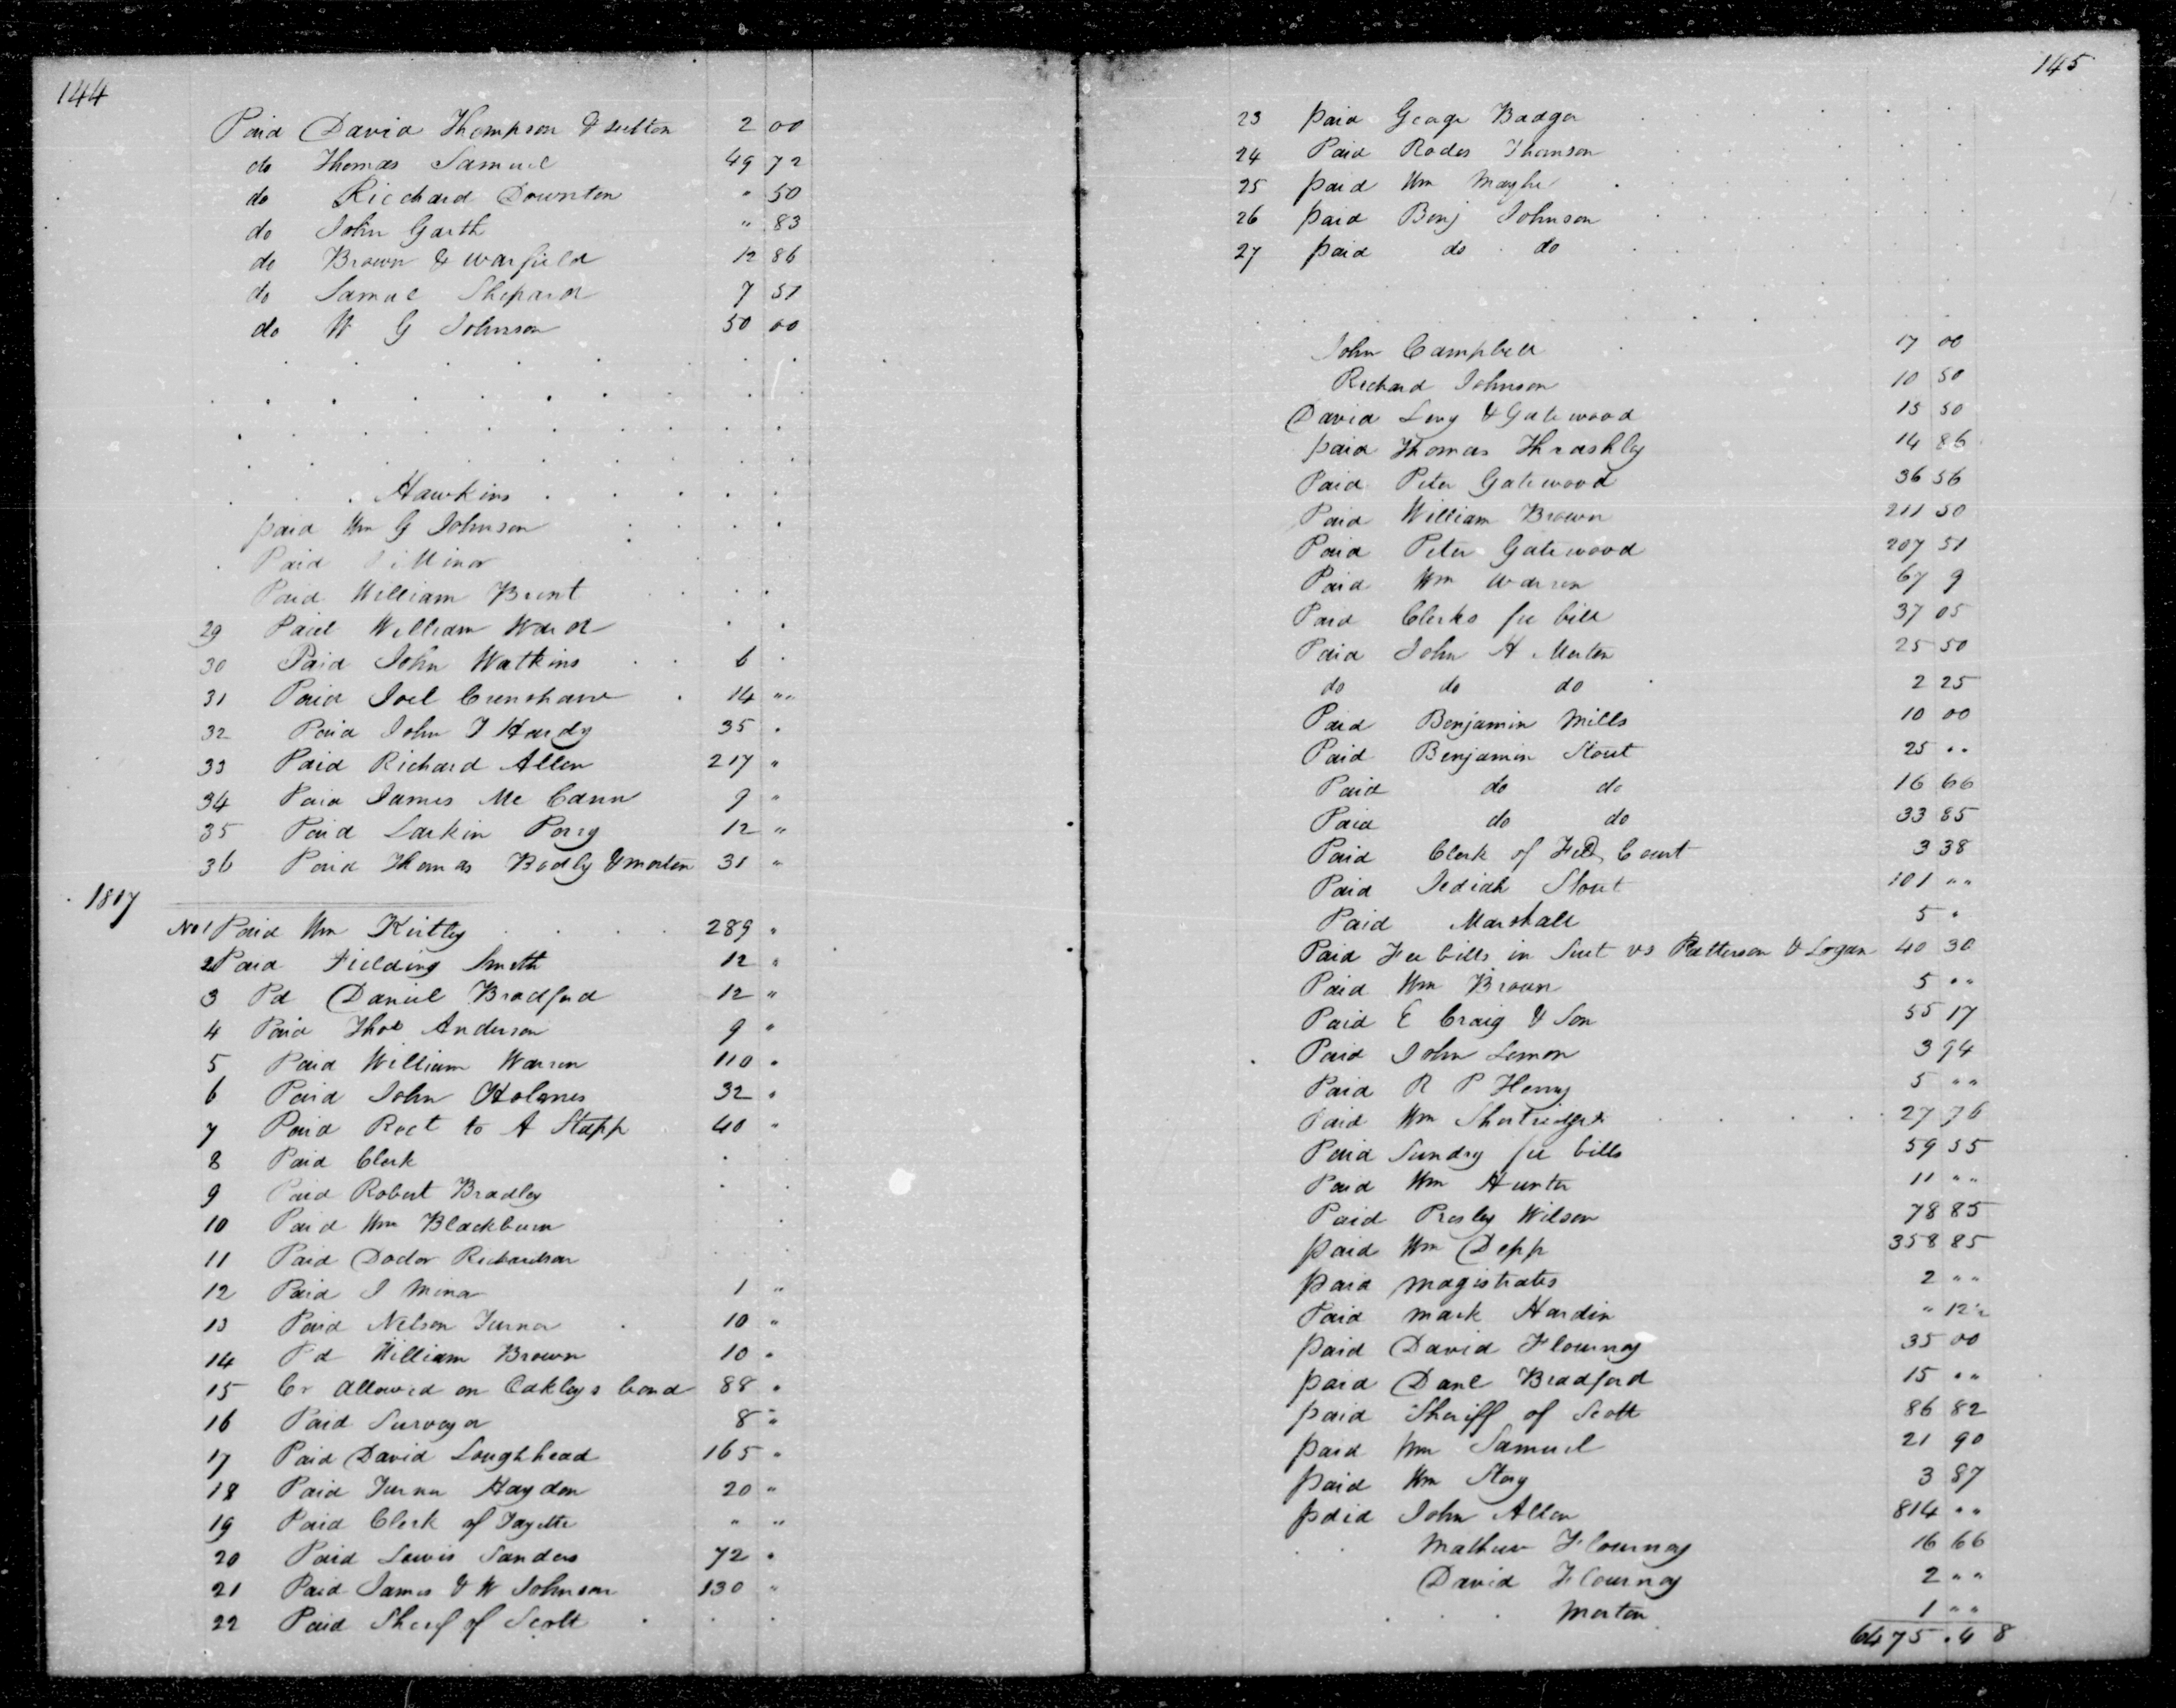 144
Paid David Thompson & Sutton 2 00
do Thomas Samuel 49 72
do Ricchard Downton " 50
do John Garth " 83
do Brown & Warfield 12 86
do Samuel Shepard 7 51
do W G Johnson 50 00
Hawkins
paid Wm G Johnson
Paid Minor
Paid William Brent
29 Paid William Ward
30 Paid John Watkins 6
31 Paid Joel Crenshaw 14 " "
32 Paid John T Hardy 35 "
33 Paid Richard Allen 217 "
34 Paid James Mc Cann 9 "
35 Paid Larkin Perry 12 "
36 Paid Thomas Bodly & Morton 31 "
1817
No 1 Paid Wm Kirtley 289 "
2 Paid Fielding Smith 12 "
3 Pd Daniel Bradford 12 "
4 Paid Thos Anderson 9 "
5 Paid William Warren 110 "
6 Paid John Holmes 32 "
7 Paid Rect to A Stapp 40 "
8 Paid Clerk
9 Paid Robert Bradley
10 Paid Wm Blackburn
11 Paid Doctor Richardson
12 Paid J Minor 1 "
13 Paid Nelson Turner 10 "
14 Pd William Brown 10 "
15 Cr Allowed on Oakleys bond 88 "
16 Paid Surveyor 8 "
17 Paid David Loughhead 165 "
18 Paid Turner Haydon 20 "
19 Paid Clerk of Fayette " "
20 Paid Lewis Sanders 72 "
21 Paid James & W Johnson 130 "
22 Paid Sherf of Scott
145
23 paid George Badger
24 Paid Rodes Thomson
25 paid Wm
26 paid Benj Johnson
27 paid do do
John Campbell 17 00
Richard Johnson 10 50
David Levy & Gatewood 15 50
paid Thomas Thrashley 14 86
Paid Peter Gatewood 36 56
Paid William Brown 211 50
Paid Peter Gatewood 207 51
Paid Wm Warren 67 9
Paid Clerks fee bill 37 05
Paid John H Morton 25 50
do do do 2 25
Paid Benjamin Mills 10 00
Paid Benjamin Stout 25 " "
Paid do do 16 66
Paid do do 33 85
Paid Clerk of Fedr Court 3 38
Paid Jediah Stout 101 " "
Paid Marshall 5 "
Paid Fee bills in Suit vs Patterson & Logan 40 30
Paid Wm Brown 5 " "
Paid E Craig & Son 55 17
Paid John Lemon 3 94
Paid R P Henry 5 " "
Paid Wm Shortridge 27 76
Paid Sundry fee bills 59 55
Paid Wm Hunter 11 " "
Paid Presley Wilson 78 85
paid Wm Depp 358 85
paid Magistrates 2 " "
Paid Mark Hardin " 12½
paid David Flournoy 35 00
paid Danl Bradford 15 " "
paid Sheriff of Scott 86 82
paid Wm Samuel 21 90
paid Wm Story 3 87
paid John Allen 814 " "
Mathew Flournoy 16 66
David Flournoy 2 " "
Morton 1 " "
6475.48